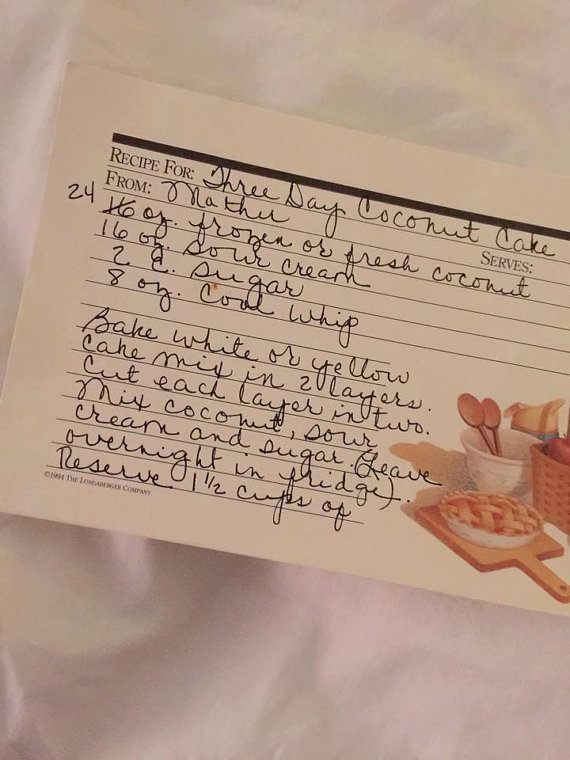 RECIPE FOR: Three Day Coconut Cake
FROM: Mother
SERVES:
24 16 oz. frozen or fresh coconut
16 oz. sour cream
2 c. sugar
8 oz. Cool Whip
Bake white or yellow
cake mix in 2 layers.
Cut each layer in two.
Mix coconut, sour
cream and sugar. (Leave
overnight in fridge).
Reserve 1 1/2 cups of
©1994 THE LONGABERGER COMPANY